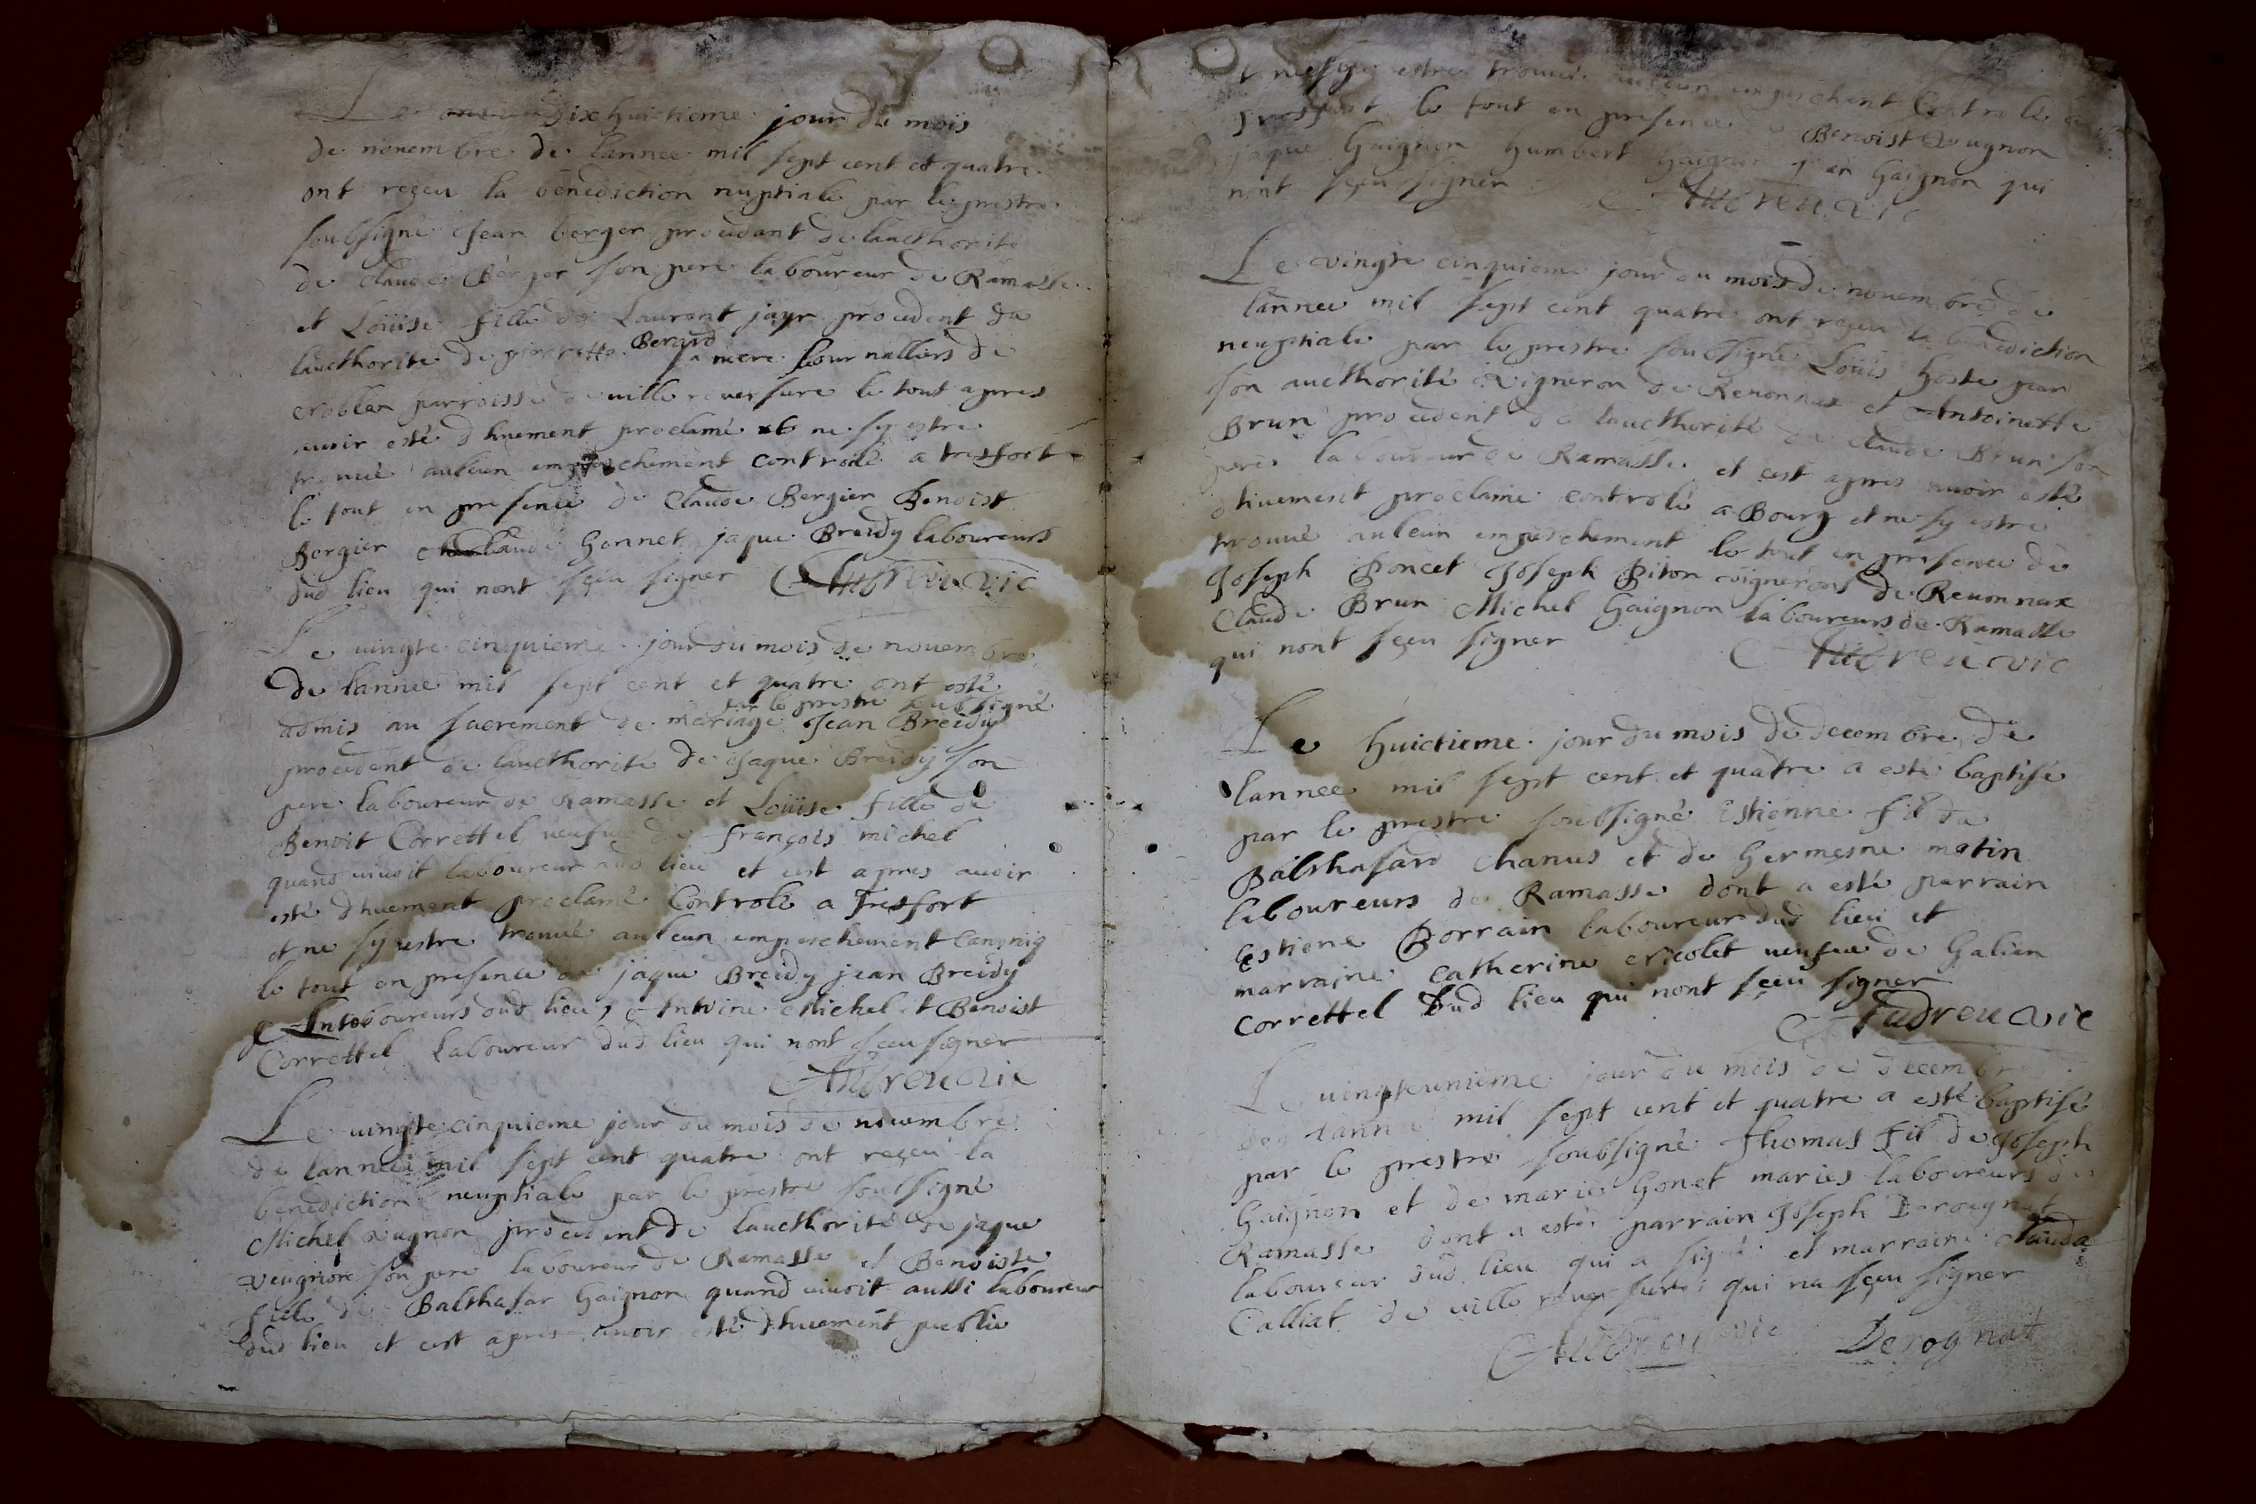 Le dixhuictieme jour du mois
de nouembre de lannee mil sept cent et quatre
ont reçeu la benediction nuptiale par le prestre
soubsigné Jean berger procedant de laucthorité
de Claude Berger son pere laboureur de Ramasse
et Loüise fille de Laurent jayr procedent de
laucthorite de pierrette Berard sa mere
parroisse de ville reuersure le tout apres
auoir esté dhuement proclamé et ne sy estre
trouué aulcun empeschement controlé a tresfort
le tout en presence de Claude Bergier Benoist
Bergier Claude Gonnet jaque Breidy laboureurs
dud lieu qui nont sçeu signer Audreuuic
Le uingte cinquieme jour du mois de nouembre
de lannee mil sept cent et quatre ont esté
admis au sacrement de mariage par le prestre soubsigné Jean Breidy
procedent de laucthorité de Jaque Breidy son
pere laboureur de Ramasse et Loüise fille de
Benoit Correttel ueufue de françois michel
quand uiuoit laboureur dud lieu et cest apres auoir
esté dhuement proclamé Controlé a Tresfort
et ne sy estre trouué aulcun empeschement canoniq
le tout en presence de jaque Breidy jean Breidy
laboureurs dud lieu, Antoine Michel et Benoist
Correttel laboureur dud lieu qui nont sceu signer
Audreuuic
Le uingte cinquieme jour du mois de nouembre
de lannee mil sept cent quatre ont reçeu la
benediction neuptiale par le prestre soubsigné
Michel uugnon procedent de laucthorité de jaque
Veugnon son pere laboureur de Ramasse et Benoiste
fille de Balthasar Gaignon quand uiuoit aussi laboureur
dud lieu et cest apres auoir esté dhuement publie
et ne sy estre trouué aulcun empeschent Controlé a
tresfort le tout en presence de Benoist Veugnon
jaque Gaignon humbert Gaignon jean Gaignon qui
nont sçeu signer Audreuuic
Le vingte cinquieme jour du mois de nouembre de
lannee mil sept cent quatre ont reçeu la benediction
neuptiale par le prestre soubsigné Loüis hoste
son aucthorité vigneron de Reuonnax et Antoinette
Brun procedent de laucthorité de Claude Brun son
pere laboureur de Ramasse et cest apres auoir esté
dhuement proclamé controlé a Bourg et ne sy estre
trouué aulcun empeschement le tout en presence de
Joseph Poncet Joseph Piton uignerons de Reuonnax
Claude Brun Michel Gaignon laboureurs de Ramasse
qui nont sçeu signer Audreuuic
Le huictieme jour du mois de decembre de
lannee mil sept cent et quatre a esté baptisé
par le prestre soubsigné Estienne fil de
Balthasard Chanus et de Germesne matin
laboureurs de Ramasse dont a esté parrain
Estiene Borrain laboureur dud lieu et
marraine Catherine nicolet ueufue de Galien
Correttel dud lieu qui nont sçeu signer
Audreuuic
Le uingteunieme jour du mois de decembre
de lannee mil sept cent et quatre a esté baptisé
par le prestre soubsigné Thomas fil de Joseph
Gaignon et de marie Gonet maries laboureurs de
Ramasse dont a esté parrain Joseph Derognat
laboureur dud lieu qui a signé et marraine Clauda
Calliat de uille reuersure qui na sçeu signer
Audreuuic Derognat